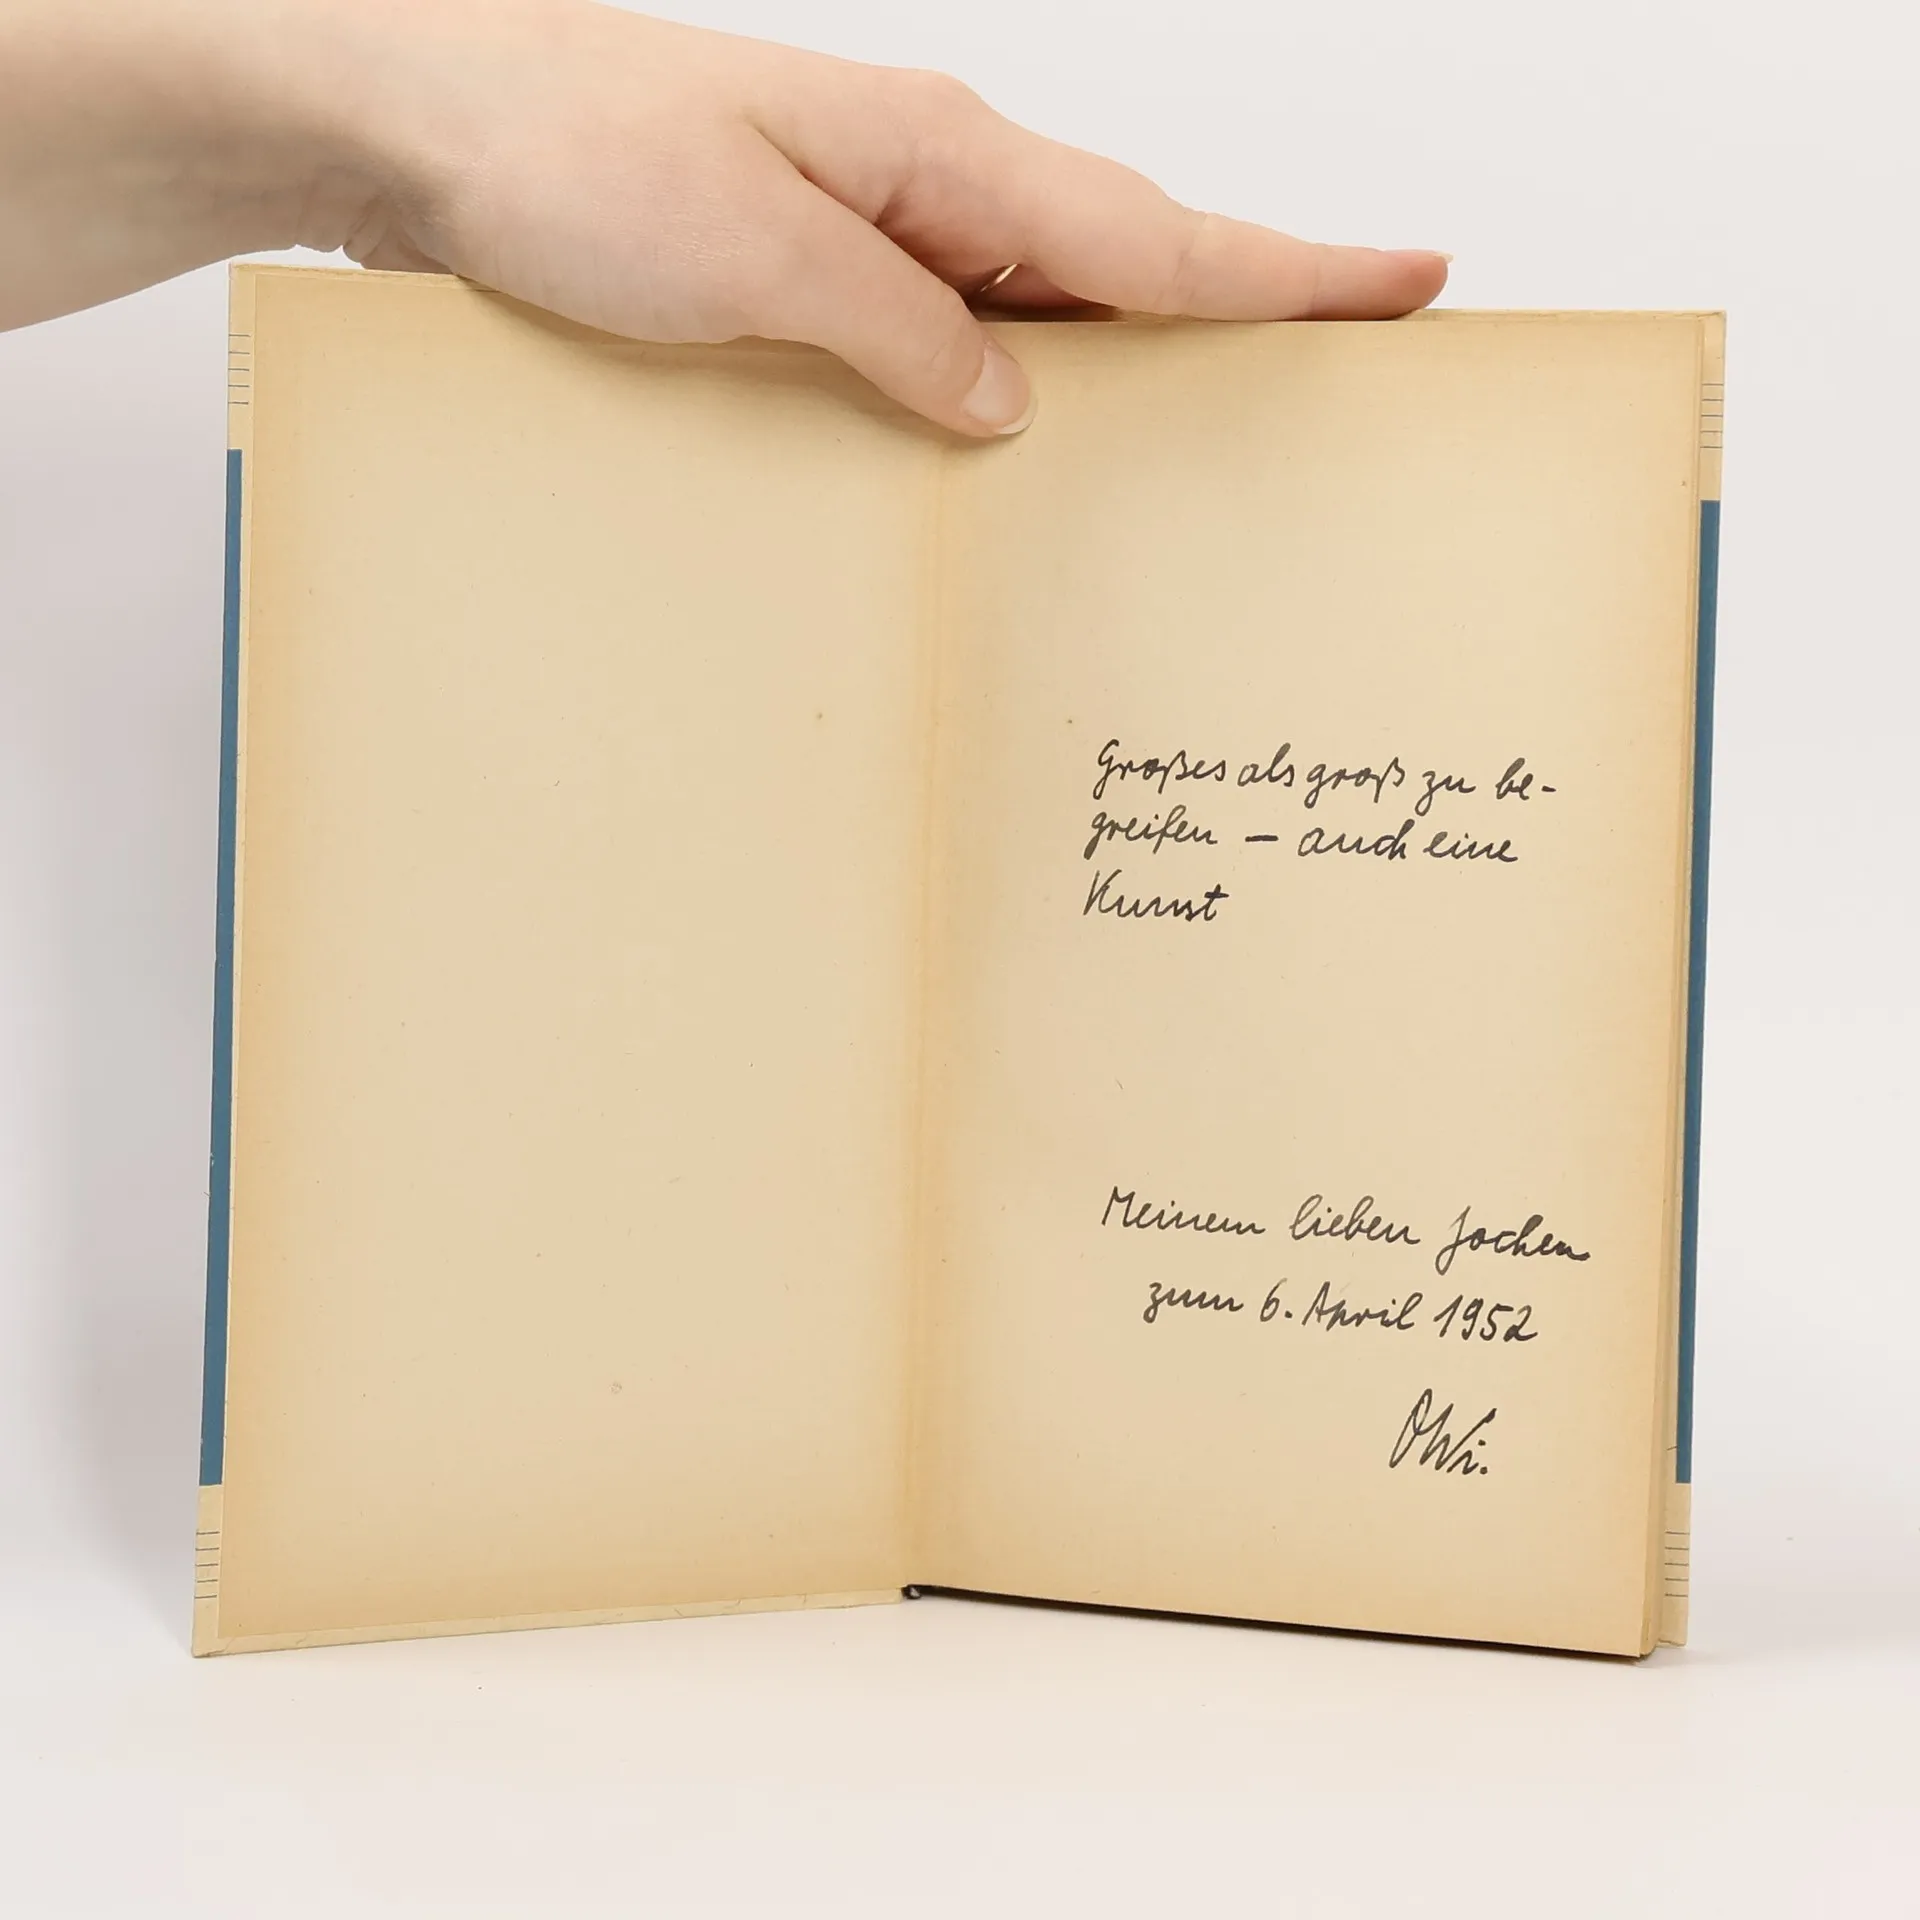 Großes als groß zu be-
greifen — auch eine
Kunst
Meinem lieben Jochen
zum 6. April 1952
OWi.